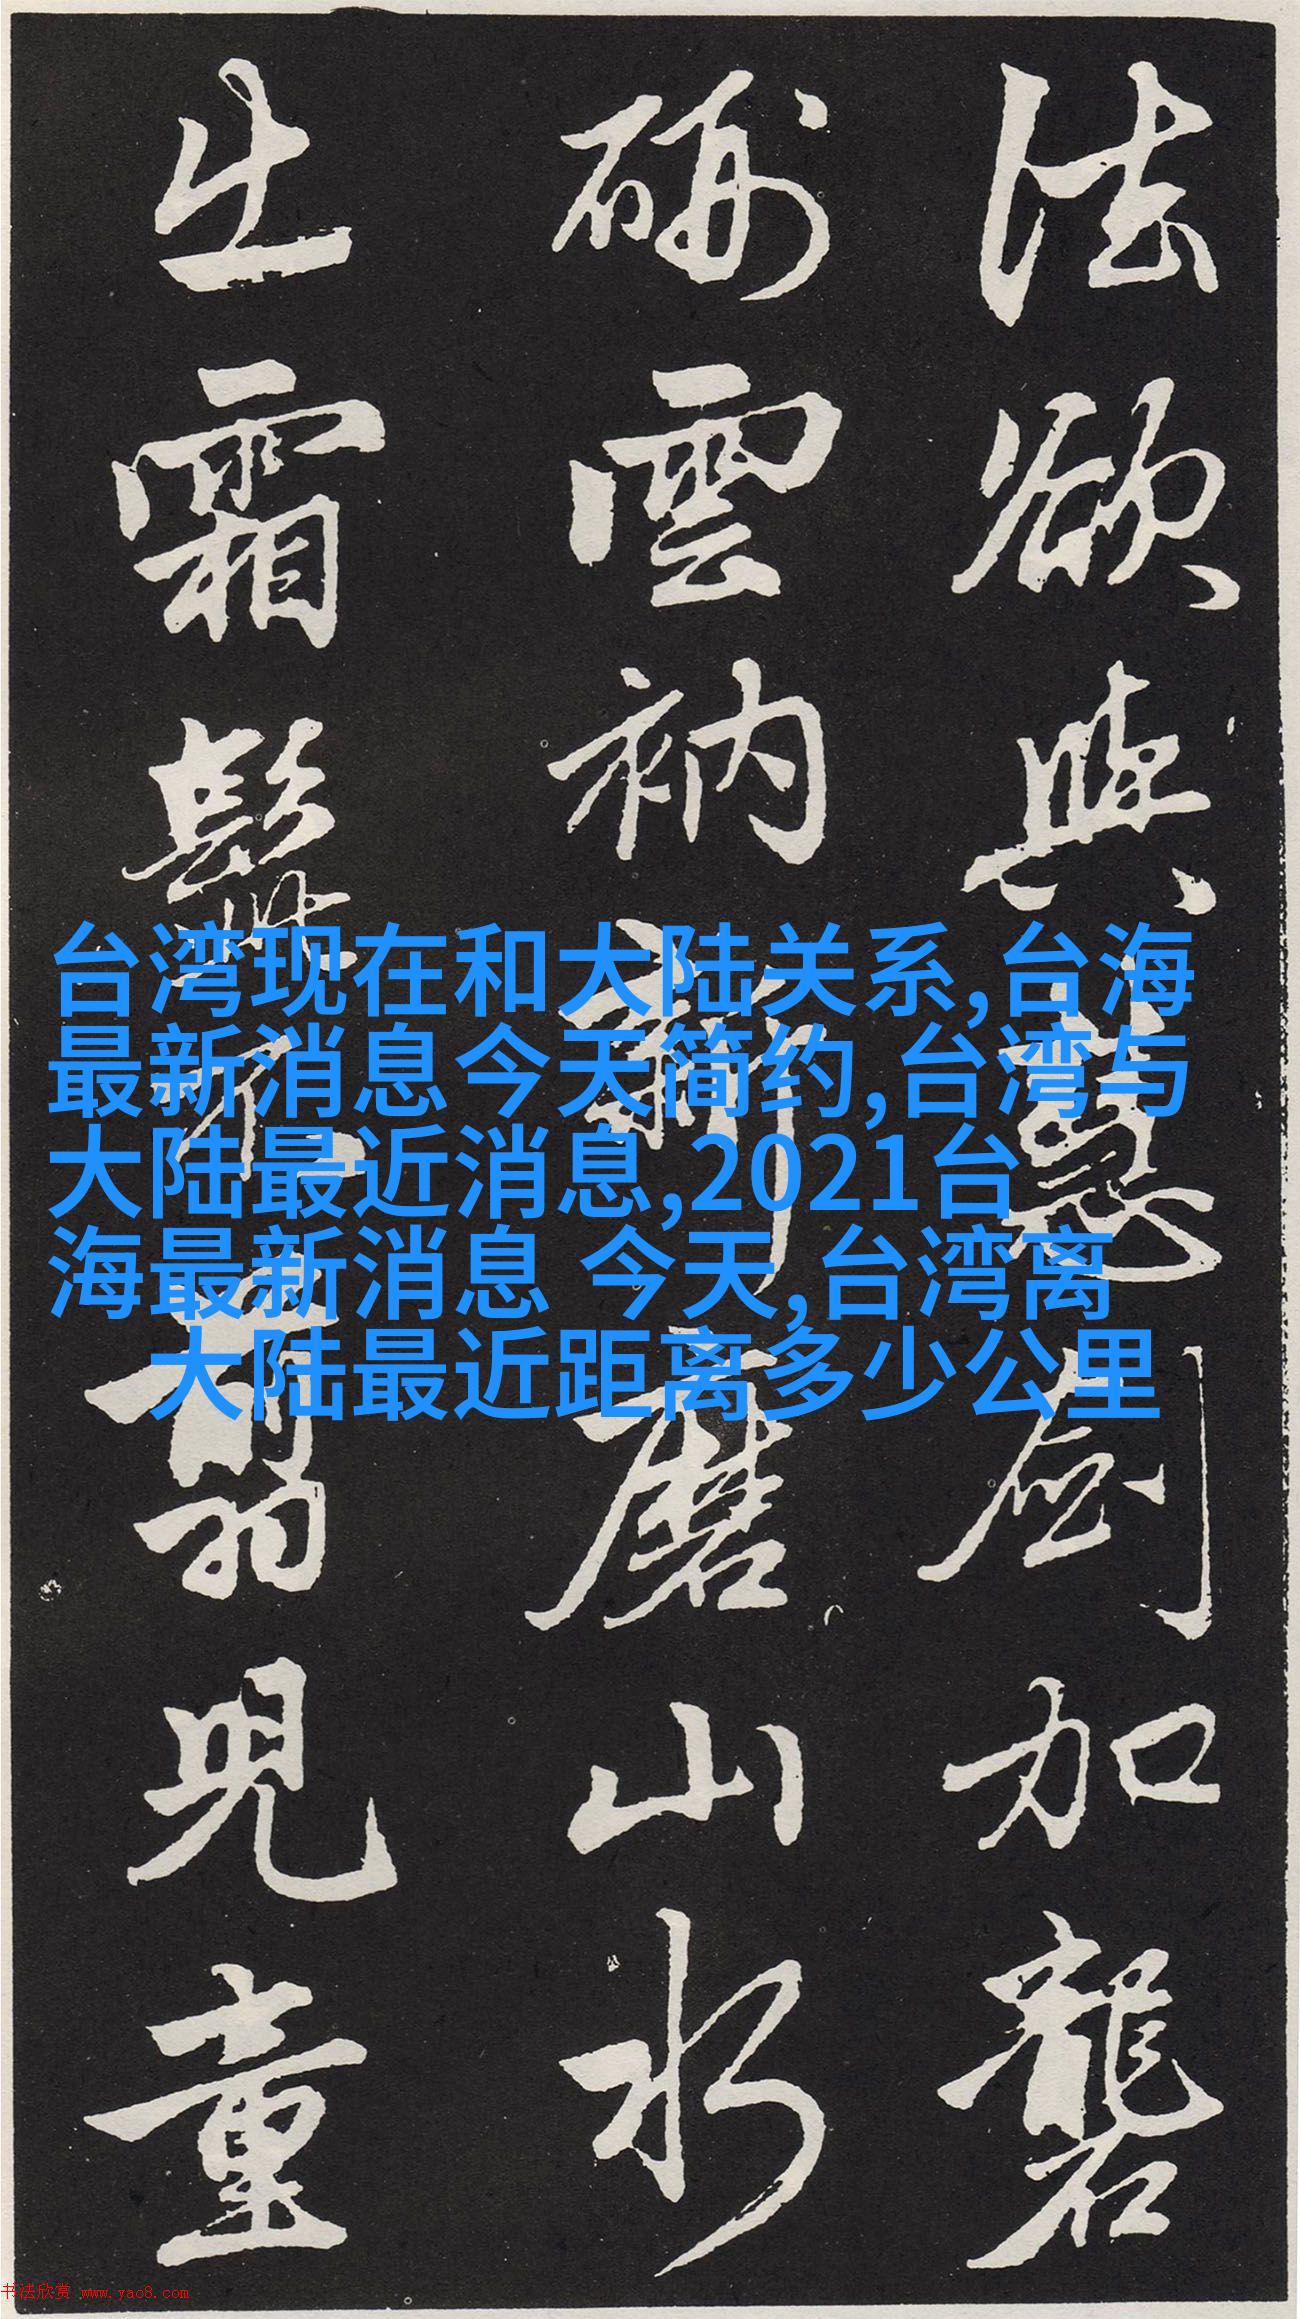 法欲與慧劍加礱
硎雲衲新磨山水
出霜髭不翦兒童
台湾现在和大陆关系,台海
最新消息今天简约,台湾与
大陆最近消息,2021台
海最新消息 今天,台湾离
大陆最近距离多少公里
书法欣赏 www.yac8.com